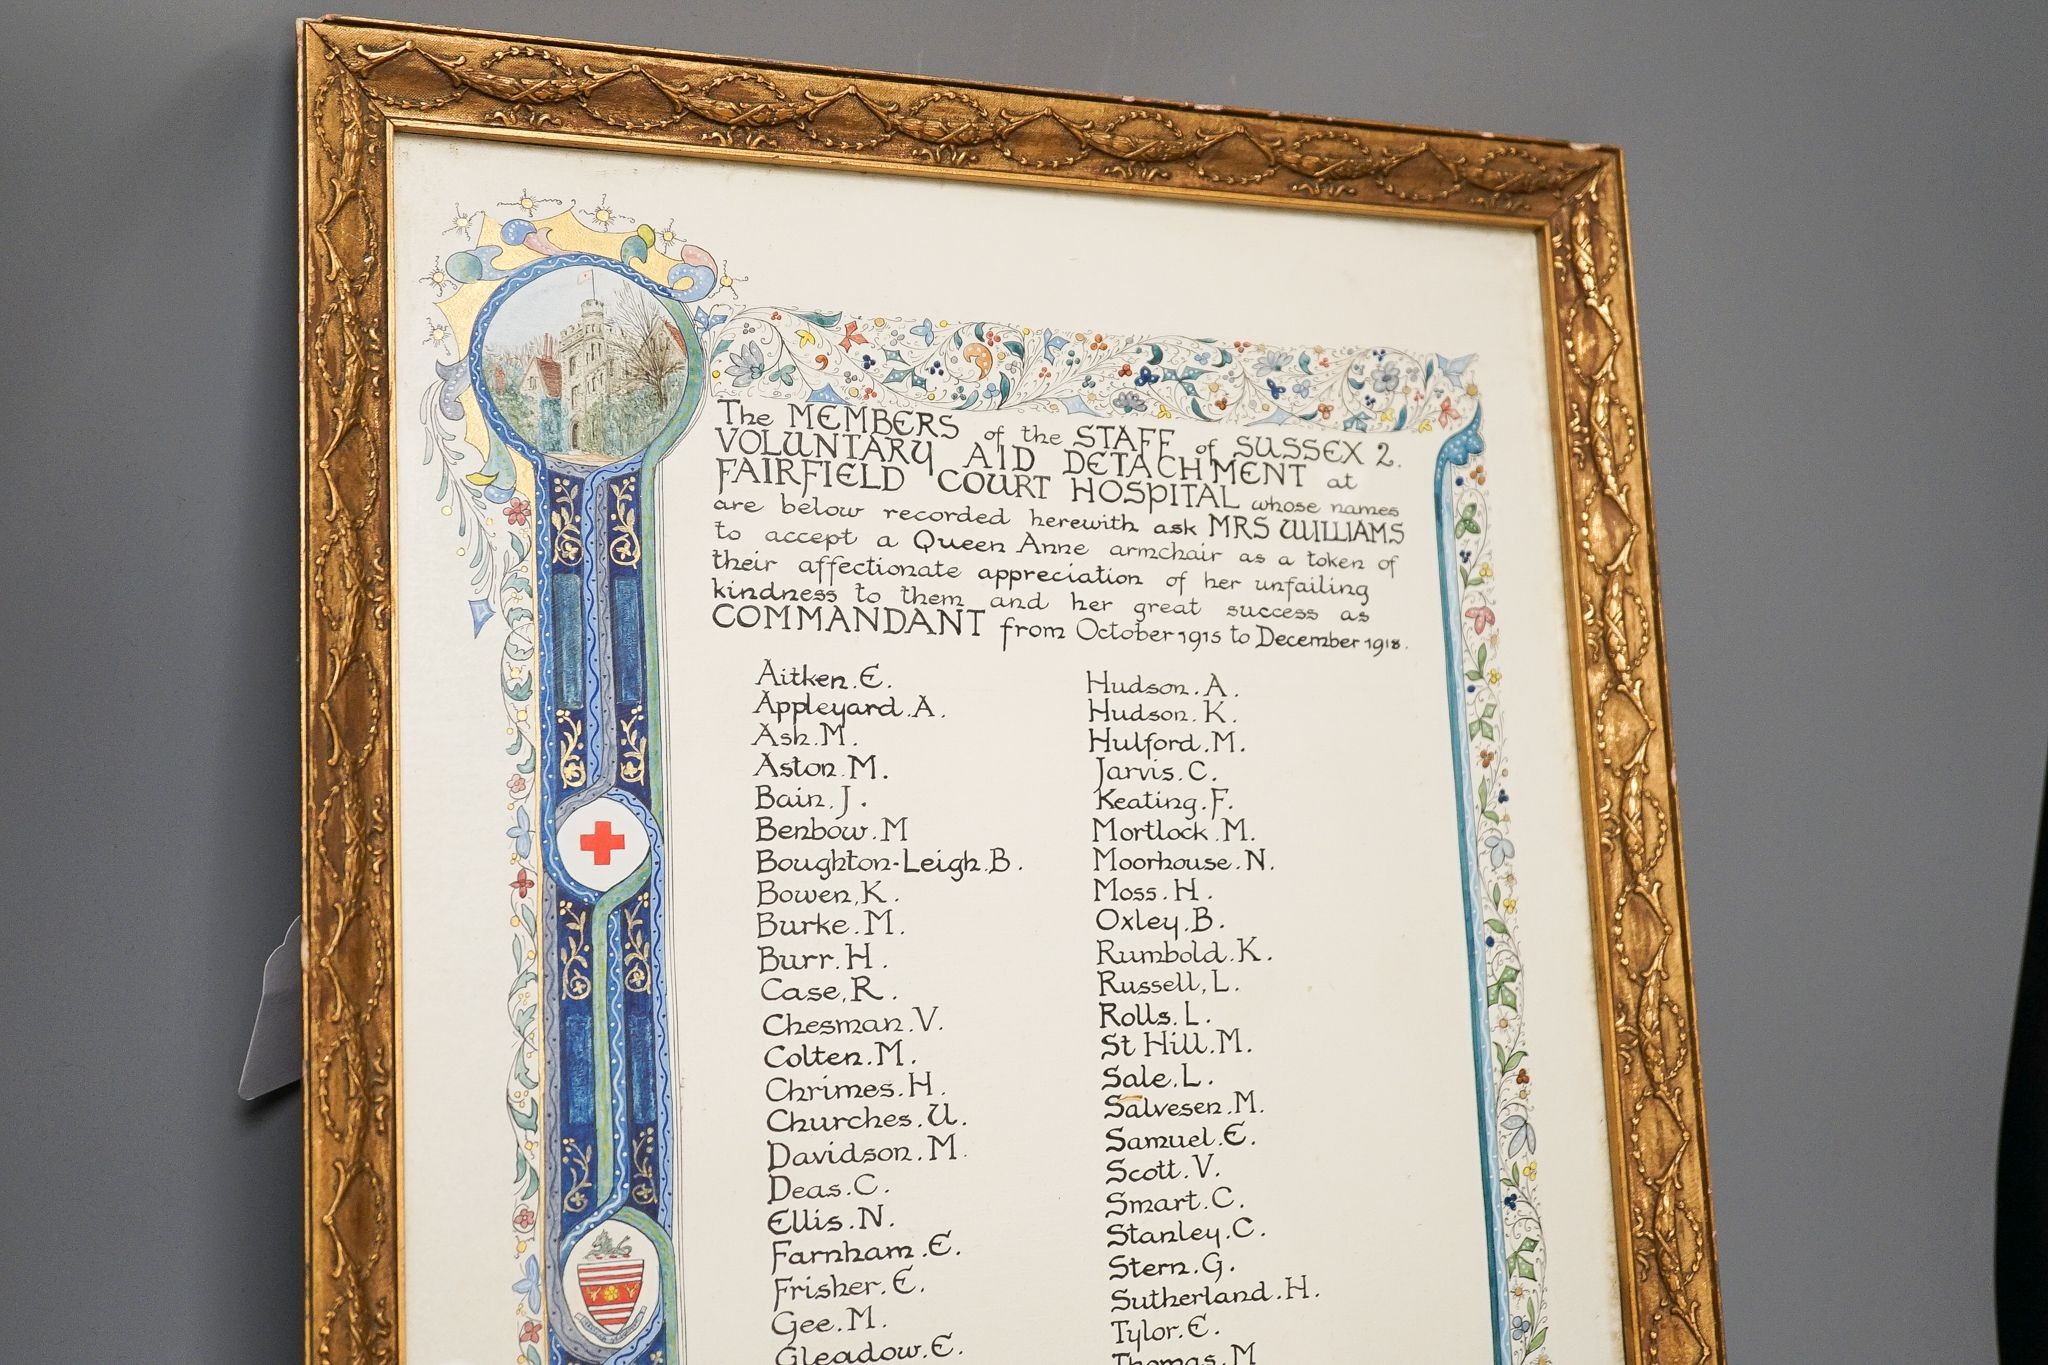 The MEMBERS of the STAFF of SUSSEX 2.
VOLUNTARY AID DETACHMENT at
FAIRFIELD COURT HOSPITAL whose names
are below recorded herewith ask MRS WILLIAMS
to accept a Queen Anne armchair as a token of
their affectionate appreciation of her unfailing
kindness to them and her great success as
COMMANDANT from October 1915 to December 1918.
Aitken. E.
Appleyard. A.
Ash. M.
Aston. M.
Bain. J.
Benbow. M
Boughton-Leigh. B.
Bowen, K.
Burke. M.
Burr. H.
Case, R.
Chesman. V.
Colten. M.
Chrimes. H.
Churches. U.
Davidson. M.
Deas. C.
Ellis. N.
Farnham. E.
Frisher. E.
Gee. M.
Gleadow. E.
Hudson. A.
Hudson. K.
Hulford. M.
Jarvis. C.
Keating. F.
Mortlock. M.
Moorhouse. N.
Moss. H.
Oxley. B.
Rumbold. K.
Russell, L.
Rolls. L.
St Hill. M.
Sale. L.
Salvesen. M.
Samuel. E.
Scott. V.
Smart. C.
Stanley. C.
Stern. G.
Sutherland. H.
Tylor. E.
Thomas. M